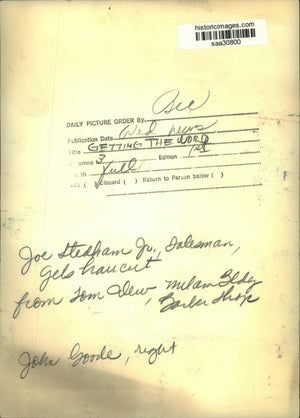 historicimages.com
saa30800
DAILY PICTURE ORDER By
Publication Date Wed news
Title GETTING THE WORD
Columns 3 Edition 1st
full
Discard ( ) Return to Person below ( )
Joe Stedham Jr., salesman,
gets haircut
from Tom Dew, Milam Bldg
Barber Shop
John Goode, right